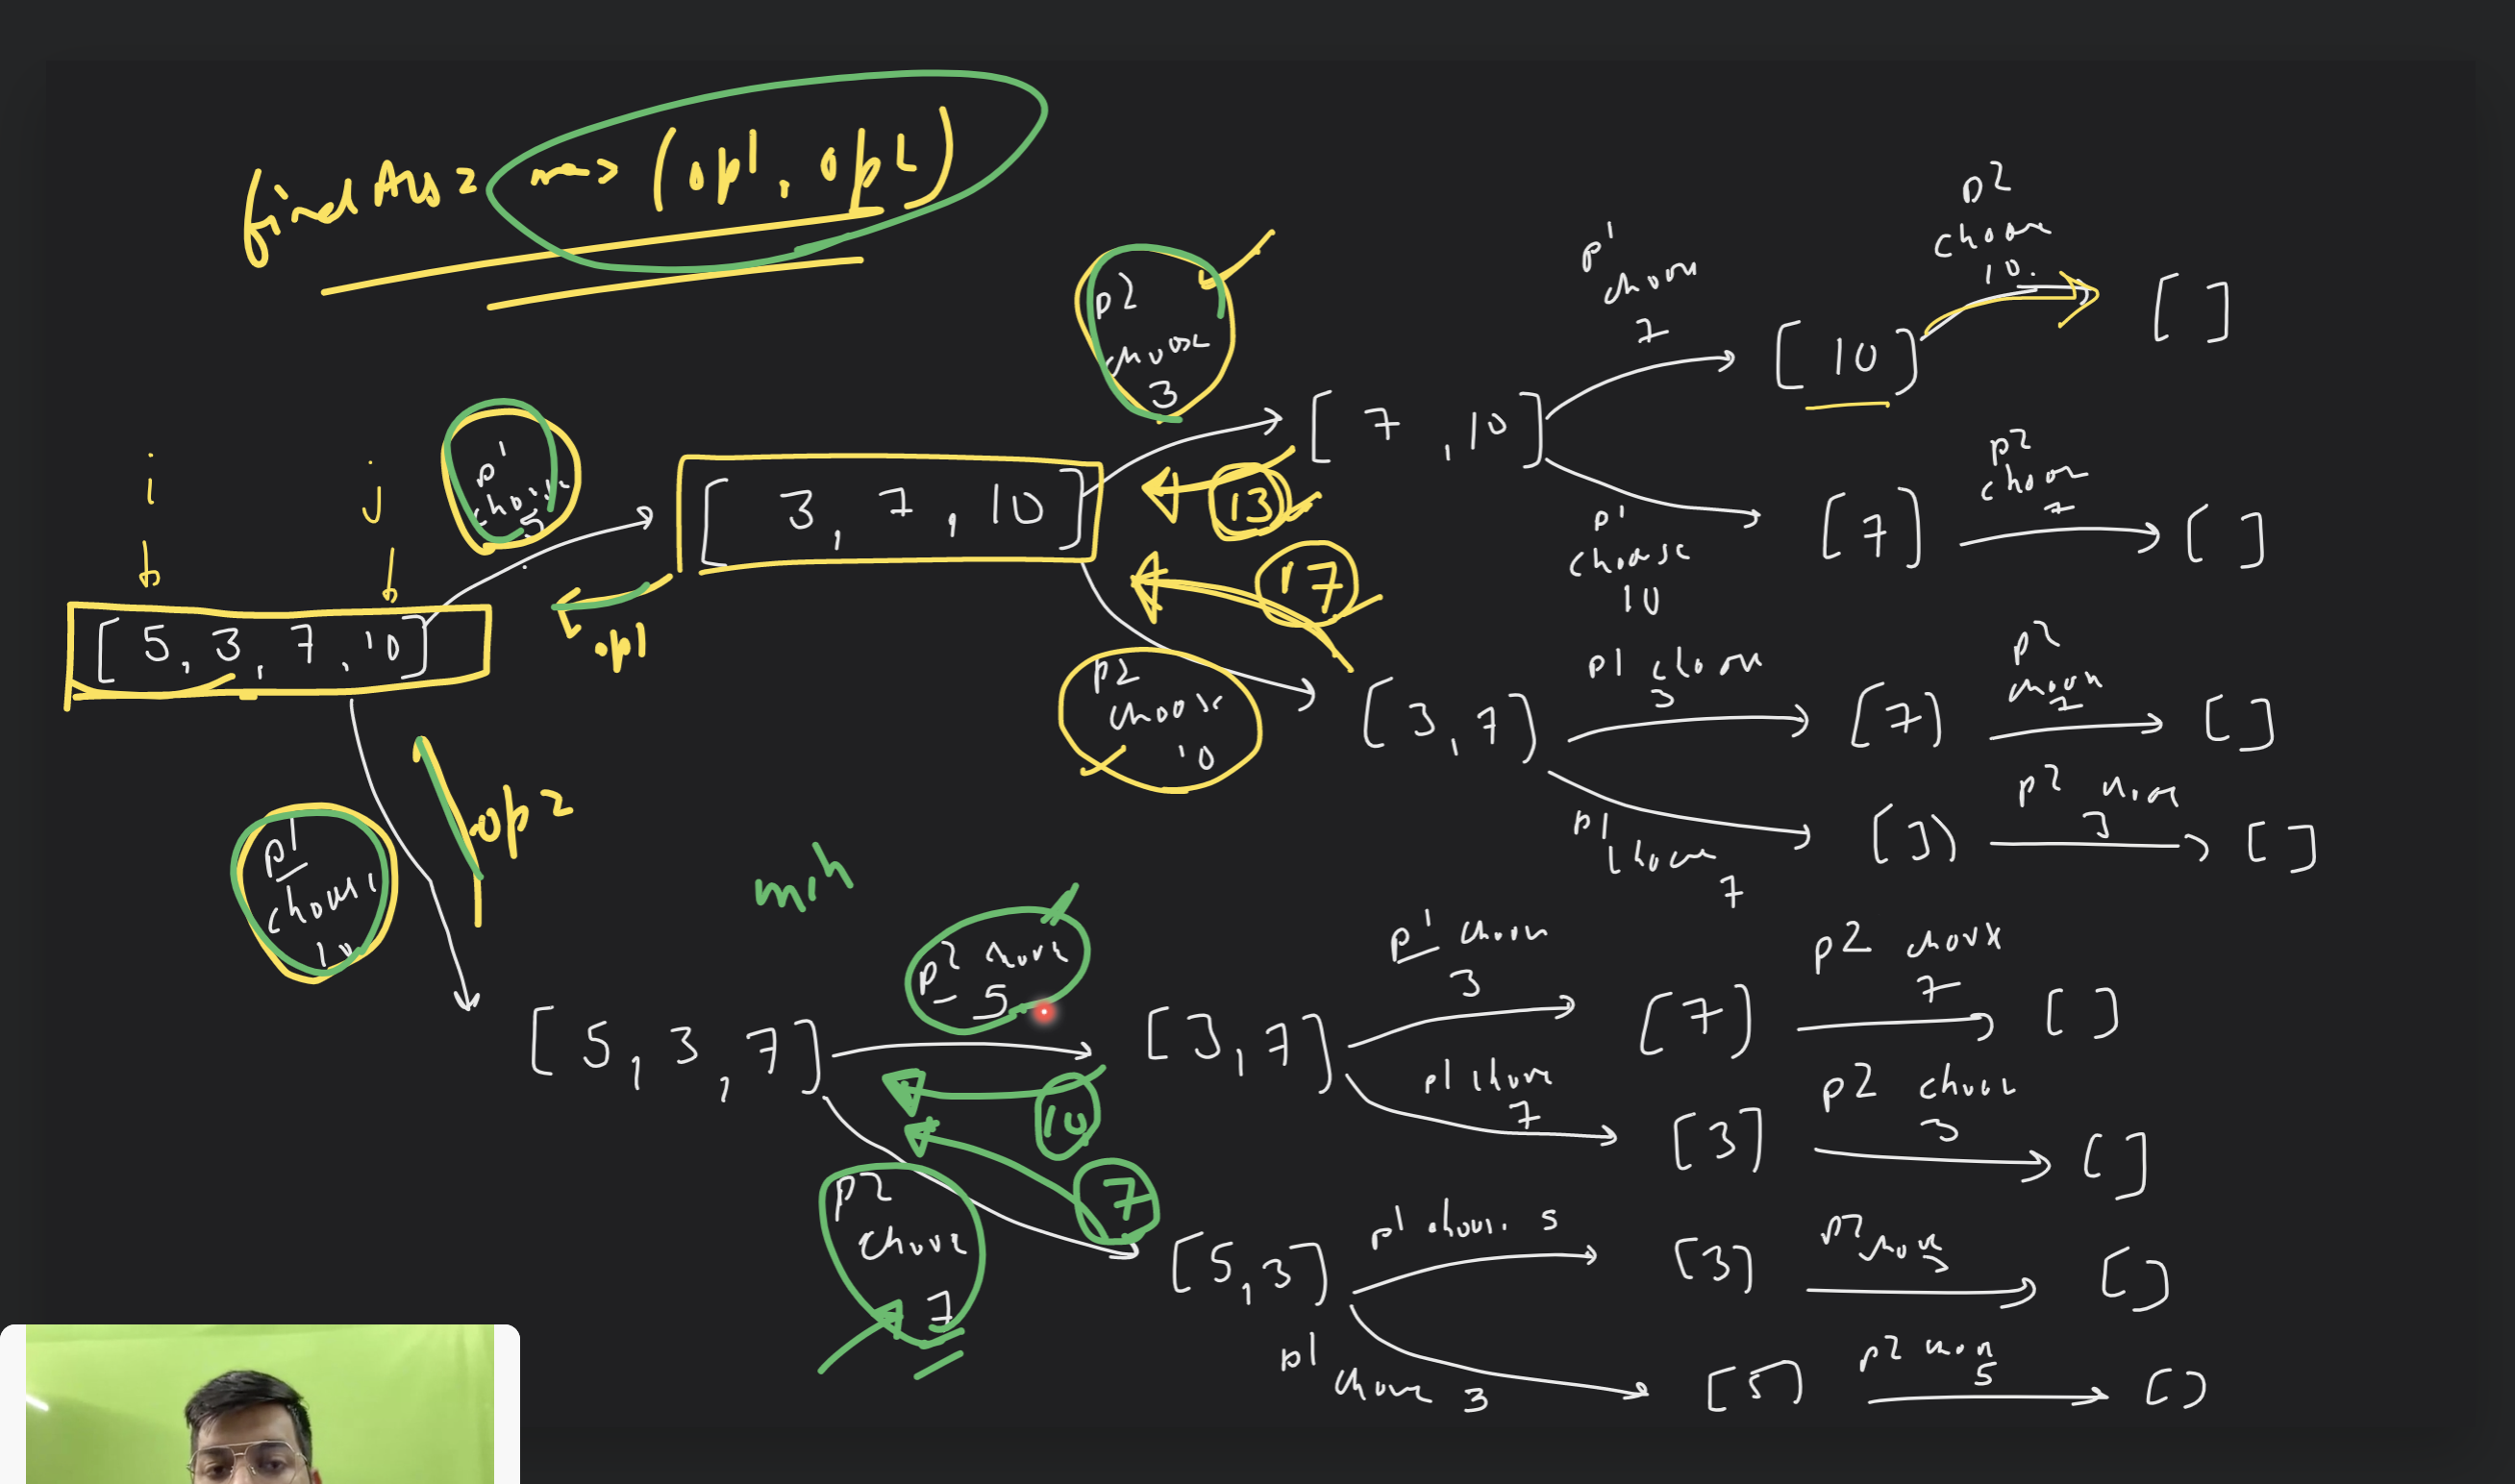 finalAns = max (op1, op2)
p2 choose 10.
p1 choose 7
p2 choose 3
[ 10 ]
[ ]
[ 7 , 10 ]
i
j
p1 choose 5
[ 3, 7, 10 ]
13
p2 choose 7
[7]
[ ]
p1 choose 10
17
[ 5, 3, 7, 10 ]
op1
p2 choose 10
[ 3, 7 ]
p1 choose 3
[7]
p2 choose 7
[ ]
p1 choose 7
[3]
p2 choose 3
[ ]
op2
p1 choose 10
min
p2 choose 5
[ 5, 3, 7 ]
[ 3, 7 ]
p1 choose 3
[7]
p2 choose 7
[ ]
10
p1 choose 7
[3]
p2 choose 3
[ ]
7
p2 choose 7
[ 5, 3 ]
p1 choose 5
[3]
p2 choose 3
[ ]
p1 choose 3
[5]
p2 choose 5
[ ]